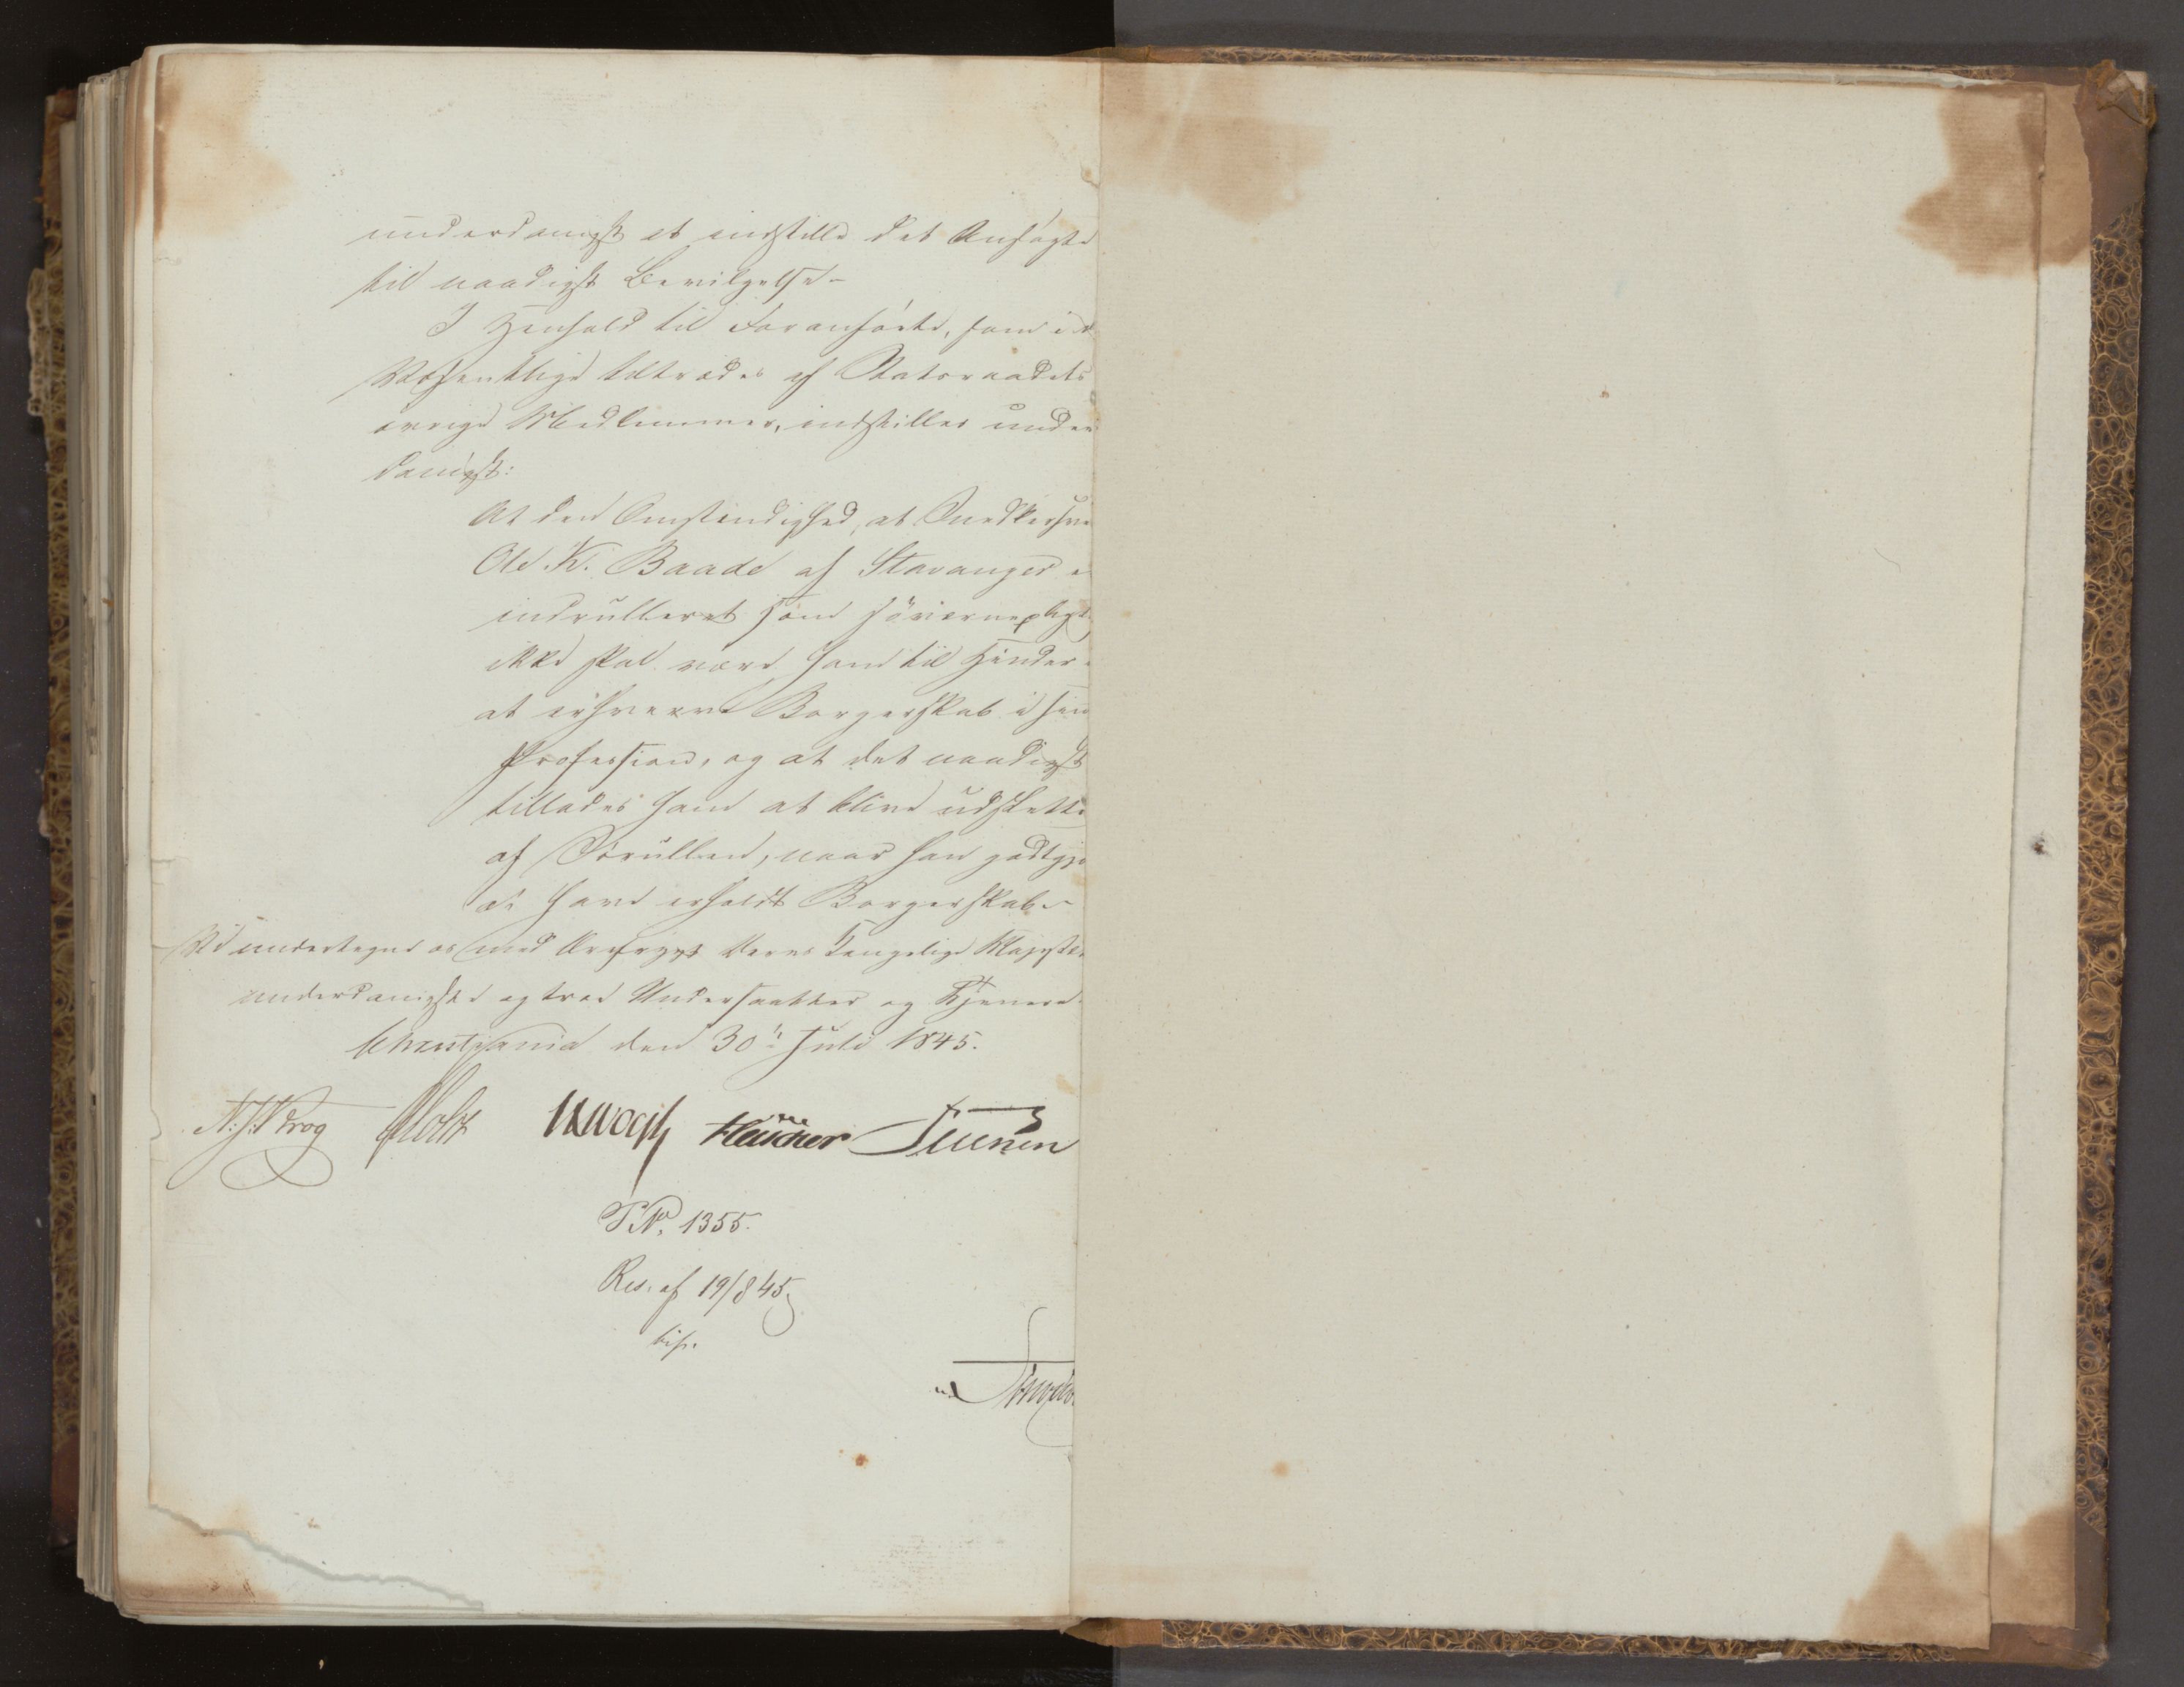 underdanigst at indstille det Ansøgte
til naadigst Bevilgelse -
I Henhold til Foranførte, som i d
Væsentlige tiltrædes af Statsraadets
øvrige Medlemmer, indstilles under
danigst:
At den Omstændighed, at Snedkersve
Ole K. Baade af Stavanger e
indrulleret som søværnepligt
ikke skal være ham til Hinder
at erhverve Borgerskab i sin
Profession, og at det naadigst
tillades ham at blive udslette
af Sørullen, naar han godtgjø
at have erholdt Borgerskab. -
Vi undertegne os med Ærefrygt Deres Kongelige Majestæts
underdanigste og troe Undersaatter og Tjenere
Christiania den 30te Juli 1845.
N. J. Krog Holst Vogt Fleischer
P.N. 1355.
Res. af 19/8 45
bif.